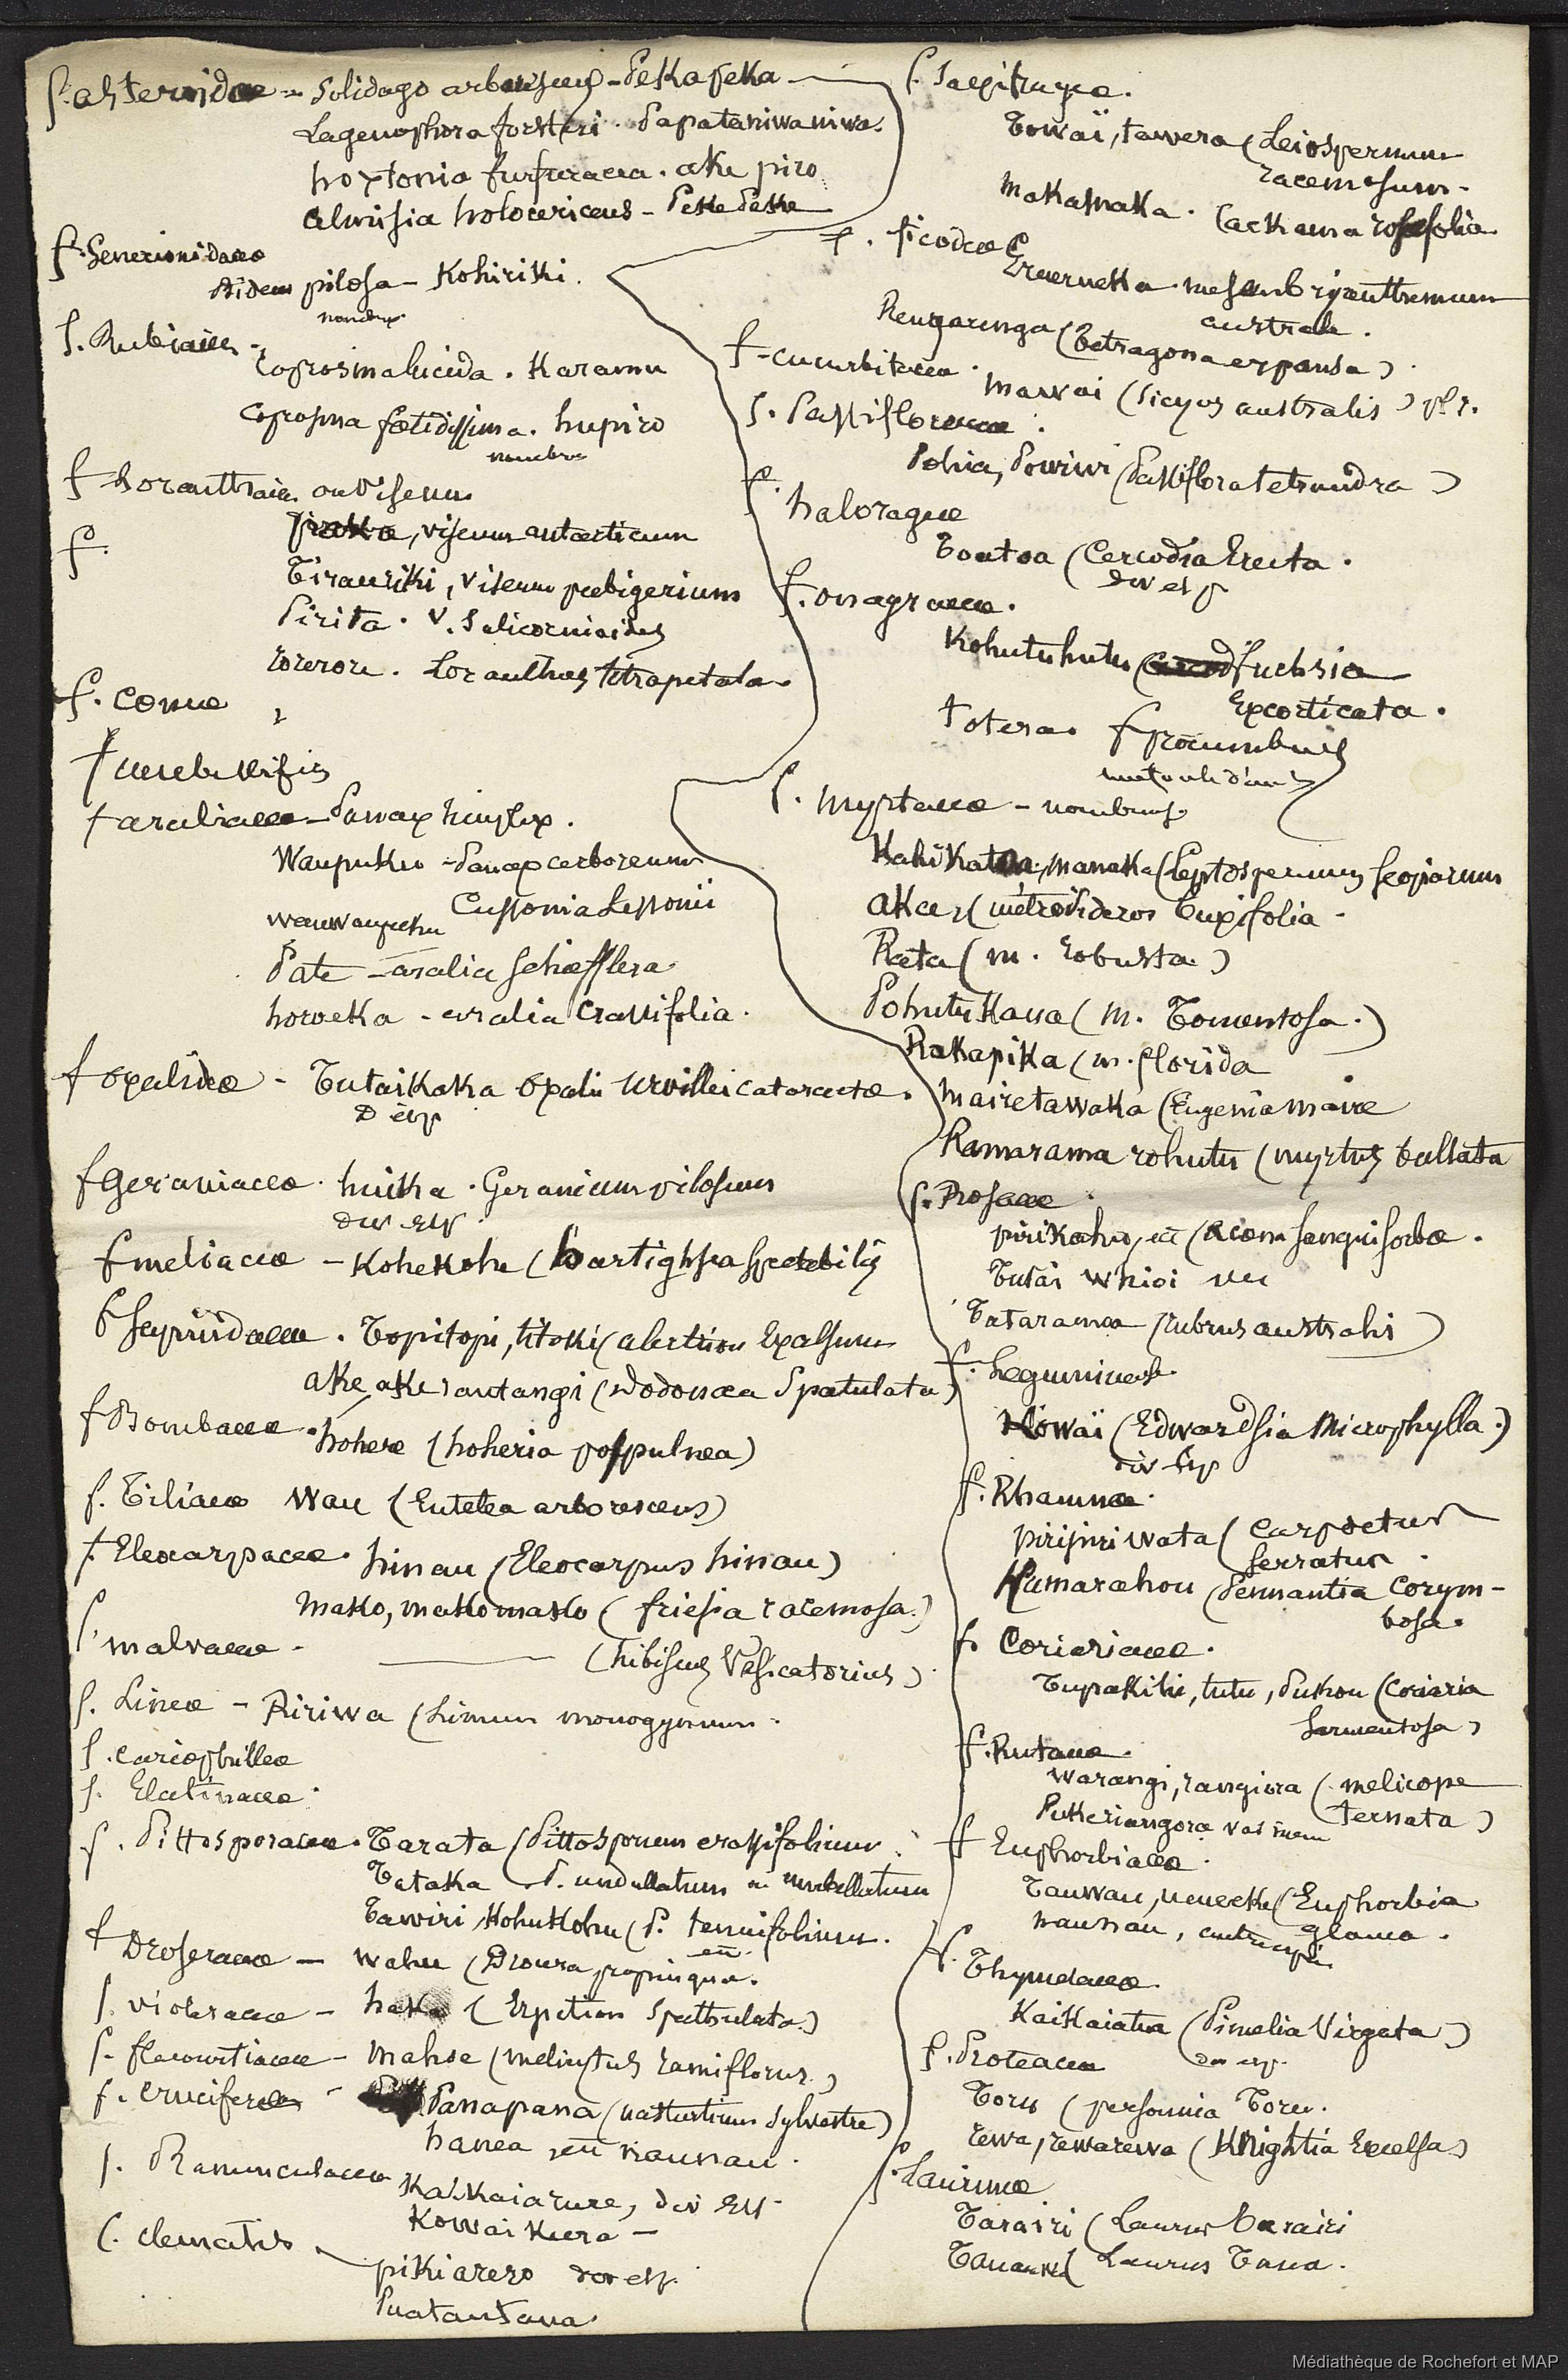 f. asteroidae - Solidago arborescens - Pekapeka
Lagenophora forsteri. Papataniwaniwa.
hoxtonia furfuracea. ake piro
Celmisia holocericeus - Peke Peke
f. Senecionidae
Bidens pilosa - Kohiriki.
f. Rubiacees - nombx
Coprosma lucida. Karamu
Coprosma foetidissima. hupiro
nombre
f Loranthacées ou Viscum
f. piraka, viscum antarticum
Tirauriki, viscum pubigerium
Pirita. V. Salicornioides
rorerore. Loranthus tetrapetala.
f. Corneae
f umbellifies
f araliaceae - Panax simplex.
Waupuku - Panax arboreum
Cussonia Lessonii
wauwaupuku
Pate - aralia Schaefflera
horoeka - aralia Crassifolia.
f oxalideae - Tutaikaka oxalis Urvillei cataractae.
D esp
f Geraniaceae. huika. Geranium pilosum
div. esp.
f meliaceae - Kohekohe (hartighsea spectabilis
f Sapindaceae. Topitopi, titoki (alectrion Excelsum
ake, ake rautangi (Dodonaea Spatulata)
f Bombaceae. hohere (hoheria poppulnea)
f. Tiliaceae Wau (Entelea arborescens)
f. Eleocarpaceae. hinau (Eleocarpus hinau)
mako, makomako (friesia racemosa.)
f. malvaceae - (hibiscus Vesicatorius)
f. Lineae - Ririwa (Linum monogynum.
f. cariophilleae
f. Elatinaceae.
f. Pittosporaceae. Tarata (Pittosporum crassifolium.
Tataka P. undullatum ou umbellatum
Tawiri, Kohukohu (P. tenuifolium.
f Droseraceae - wahu (Drosera propinqua. etc
f. violaraceae - haka (Erpetion Spathulata.)
f. flacourtiaceae - mahoe (melicytus ramiflorus.)
f. cruciferae - Panapana (nasturtium Sylvestre)
hanea ou naunau.
f. Ranunculaceae Kaikaiarure, div esp.
Kowai Kura -
f. clematis - pikiarero div esp.
Puatautaua.
f. Saxifrageae.
Towaï, tawera (Leiospermum
racemosum.
Makamaka. (ackama rosaefolia.
f. ficoideae
Eruerueka mesembryanthemum
australe.
Rengarenga (Tetragona expansa).
f. cucurbitacea.
mawai (Sicyos australis) pl r.
f. Passifloreaceae.
Pohia, Powiwi (Passiflora tetrandra)
f. halorageae
Toatoa (Cercodia Erecta.
div esp
f. onagraceae.
Kohutuhutu (fuchsia
Excorticata.
totera. f procumbens
f. myrtaceae - nombreux
Kahikatoa, manuka (Leptospermum scoparium
Akaes (metrosideros buxifolia.
Rata (m. robusta.)
Pohutukaua (m. Tomentosa.)
Rakapika (m. florida
mairetawaka (Eugenia maire
Ramarama rohutu (myrtus bullata
f. Rosaceae.
pirikahu, etc (acaena sanguisorbae.
Tutai whioi
Tataramoa (rubus australis)
f. Legumineuse.
Kowaï (Edwardsia Microphylla.)
div esp
f. Rhamneae.
piripiriwata (Carpodetus
serratus.
Kumarahou (Pennantia corym-
bosa.
f. Coriariaceae.
Tupakihi, tutu, Puhou (coriaria
Sarmentosa)
f. Rutaceae.
Warangi, rangiora (melicope
ternata)
Pukeriangora
f Euphorbiaceae.
Tauwau, ueueeku (Euphorbia
glauca.
naunau,
f. Thymelaceae.
Kaikaiatua (Pimelia Virgata)
div esp.
f. Proteacea
Toru (personnia Toru.
rewa, rewarewa (Knightia Excelsa)
f. Laurineae
Tarairi (Laurus tarairi
Taua (Laurus Taua.
Médiathèque de Rochefort et MAP